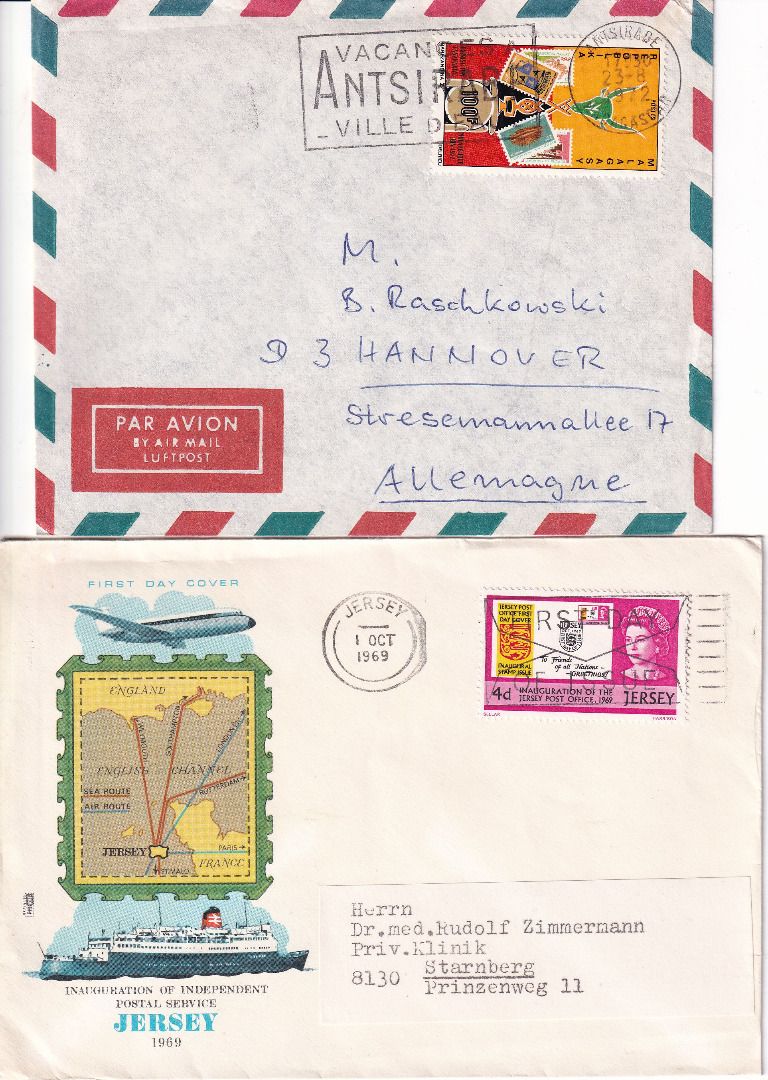 VACAN
ANTSIRAB
-VILLE D
23-8
REPOBLIKA
MALAGASY
100F
M.
B. Raschkowski
D 3 HANNOVER
Stresemannallee 17
Allemagne
PAR AVION
BY AIR MAIL
LUFTPOST
FIRST DAY COVER
ENGLAND
PLYMOUTH
SOUTHAMPTON
LONDON
ENGLISH CHANNEL
ROTTERDAM
SEA ROUTE
AIR ROUTE
JERSEY
PARIS
FRANCE
ST MALO
INAUGURATION OF INDEPENDENT
POSTAL SERVICE
JERSEY
1969
JERSEY
1 OCT
1969
FIRST DAY
OF ISSUE
JERSEY POST
OFFICE FIRST
DAY COVER
INAUGURAL
STAMP ISSUE
To Friends
of all Nations -
GREETINGS!
4d
INAUGURATION OF THE
JERSEY POST OFFICE, 1969
JERSEY
SELLAR
HARRISON
Herrn
Dr.med.Rudolf Zimmermann
Priv.Klinik
8130 Starnberg
Prinzenweg 11